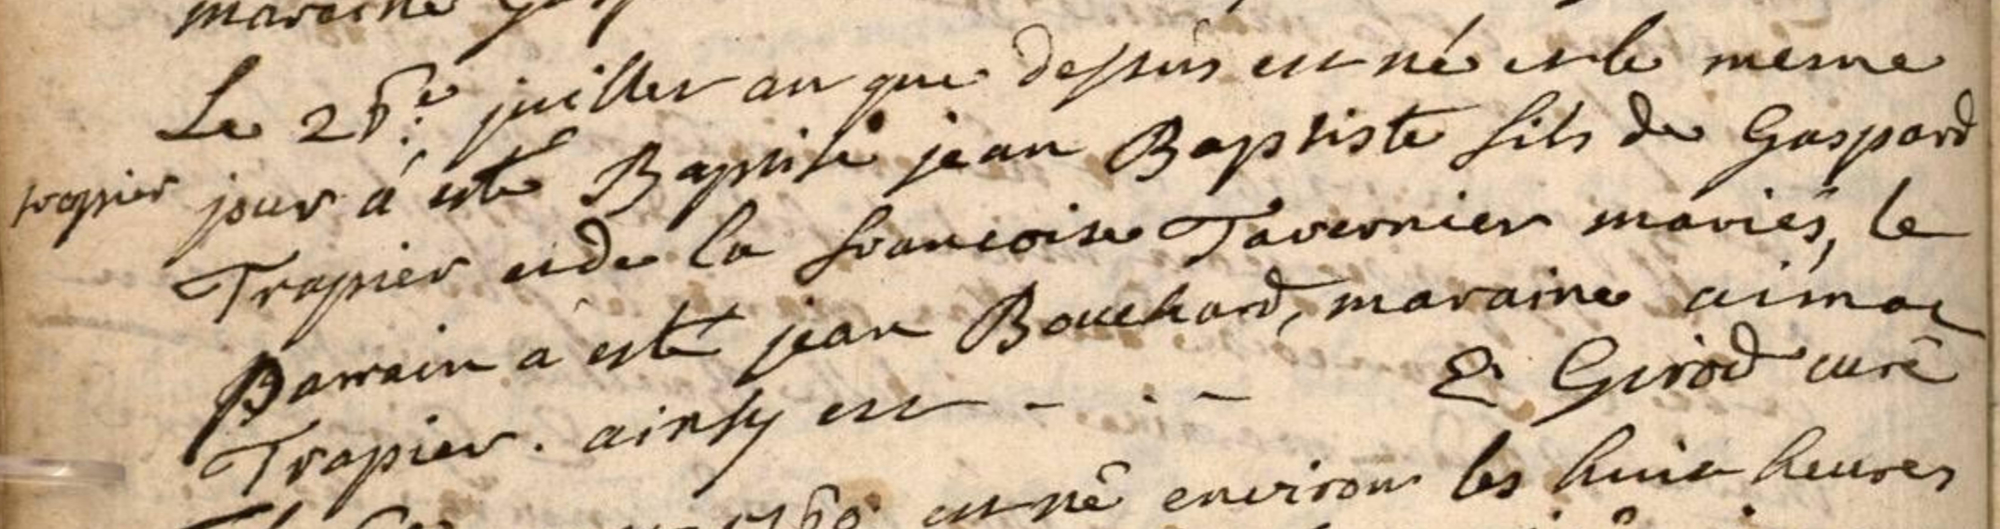 Le 26:e juillet an que dessus est né et le mesme
trapier
jour a esté Baptisé jean Baptiste fils de Gaspard
Trapier et de la francoise Tavernier mariés, le
Parrain a esté jean Bouchard, maraine aimac
Trapier. ainsy est - . - E Girod curé
1760 est né environ les huit heures